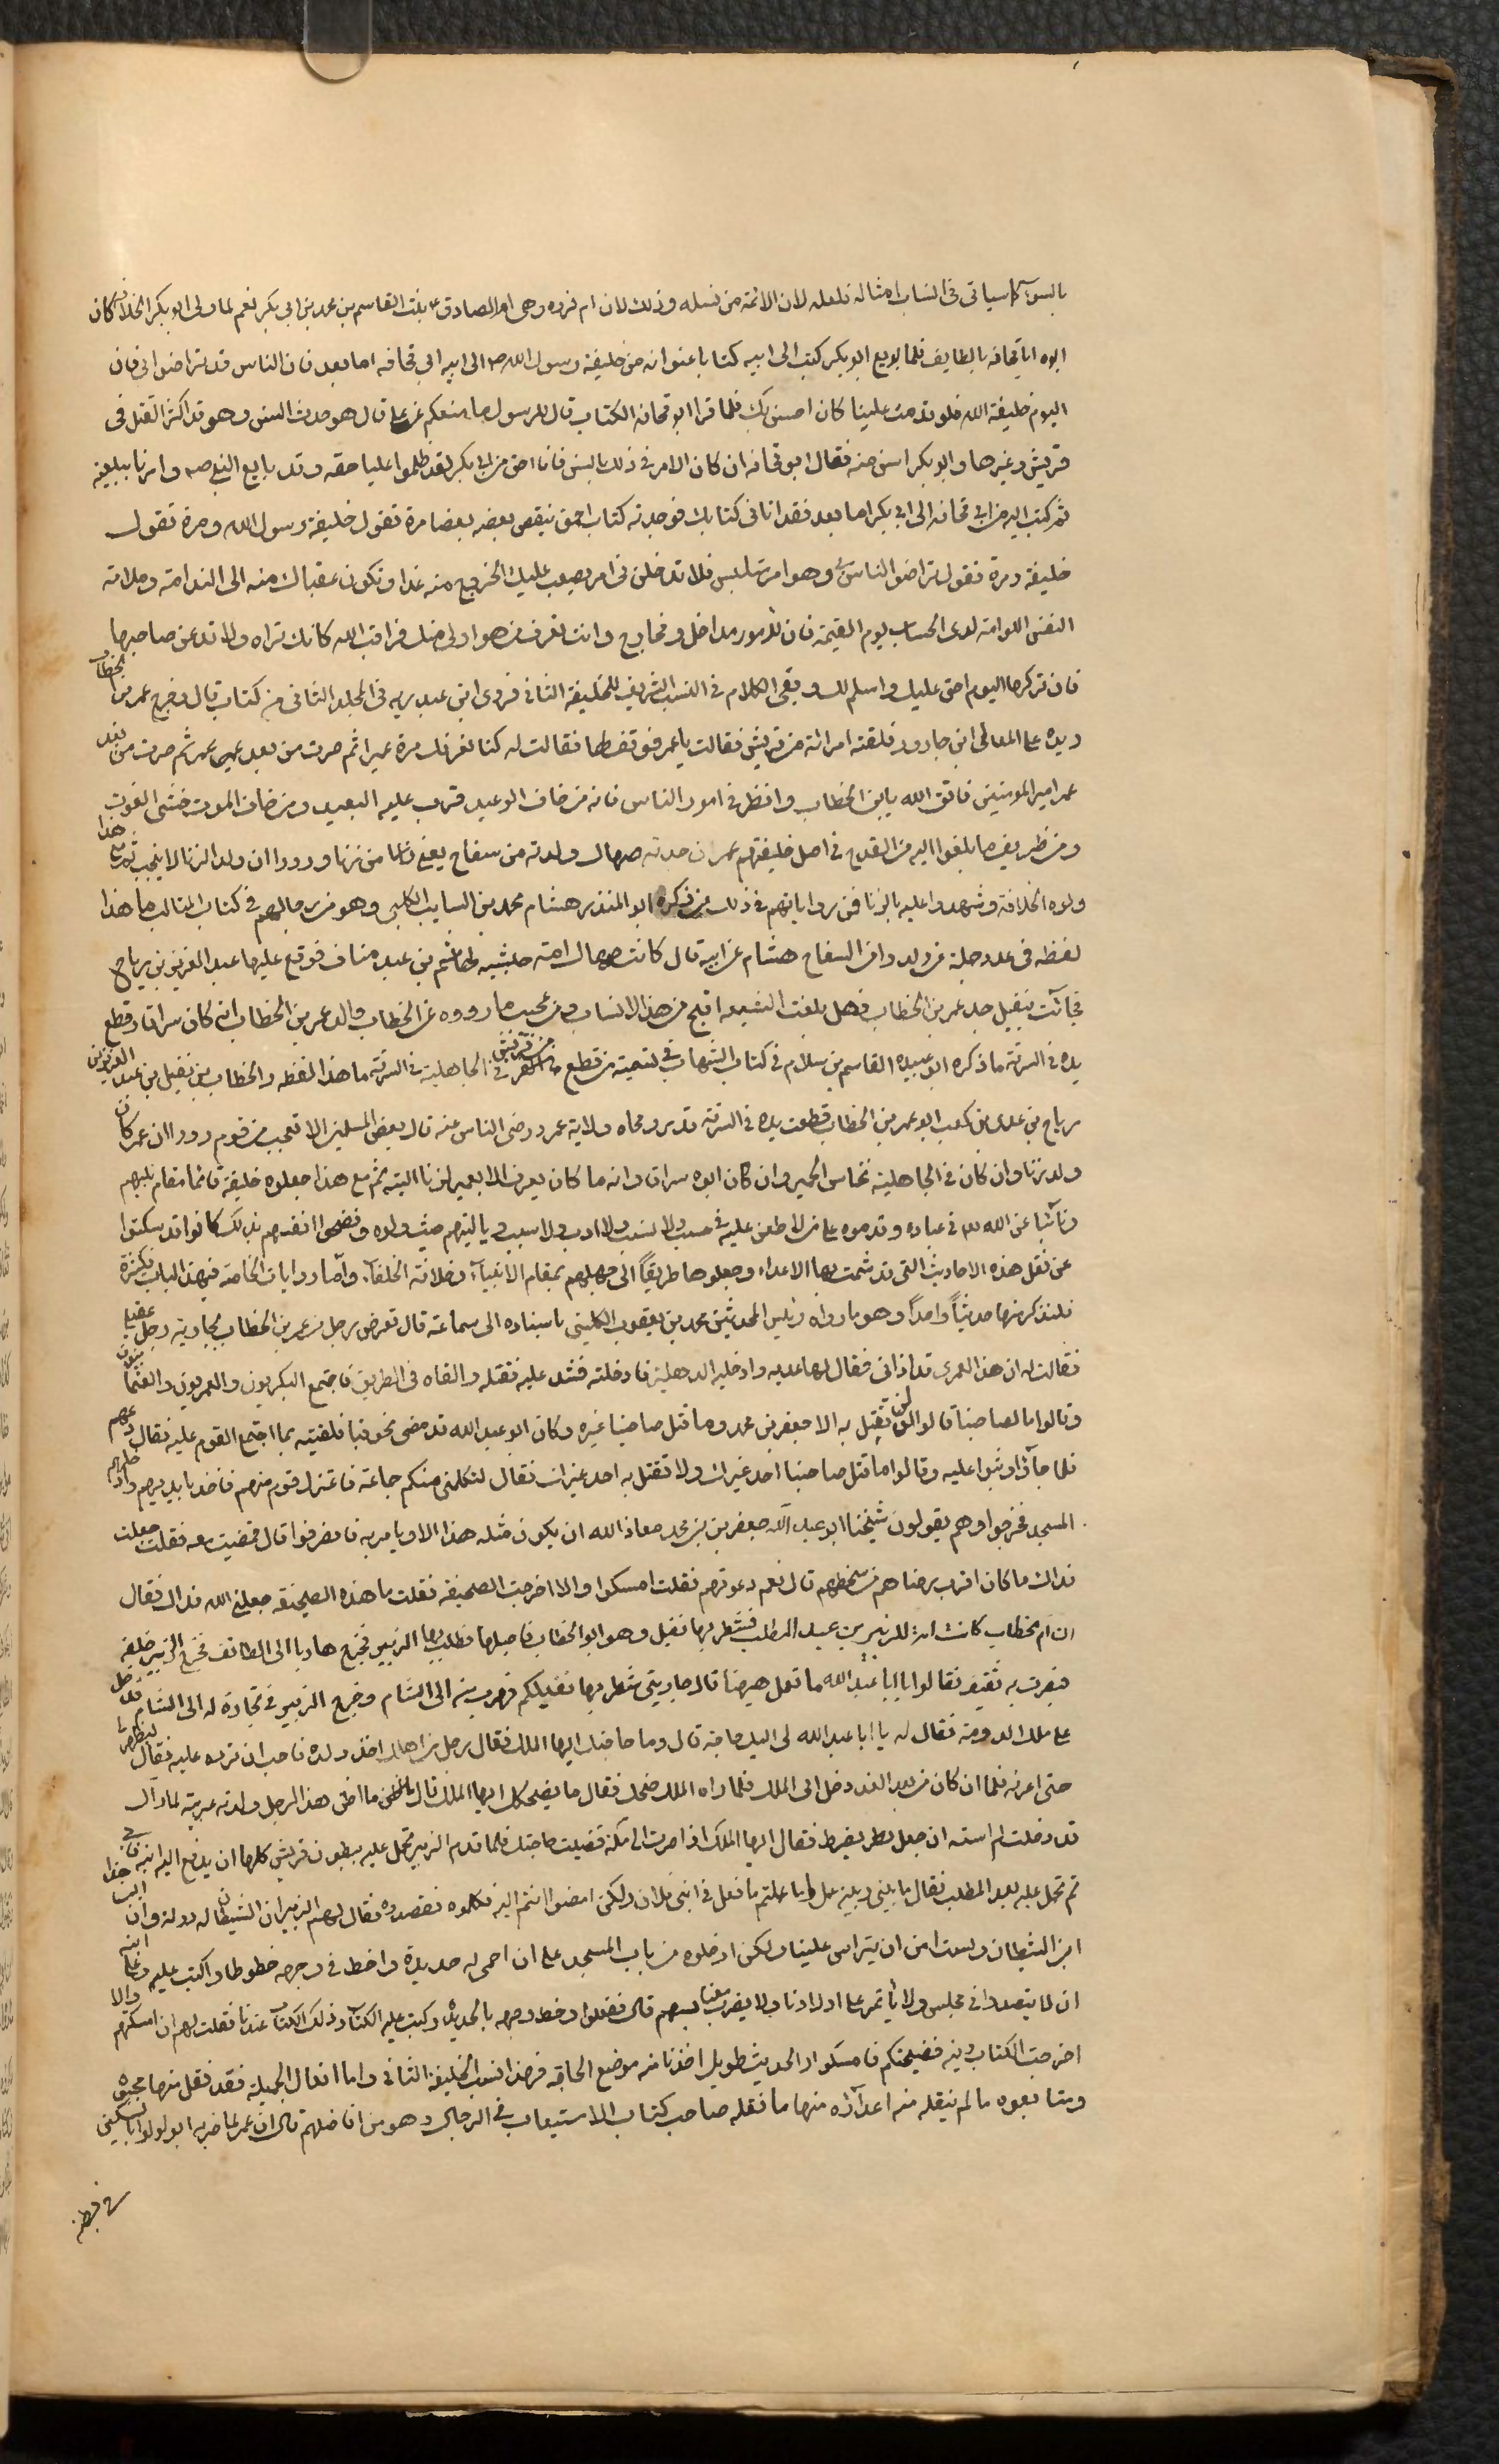 بالسوء كما سياتى فى انساب امثاله فلعله لان الائمة من نسله وذلك لان ام فروه وهى ام الصادق ع بنت القاسم بن محمد بن ابى بكر نعم لما ولى ابو بكر الخلافة كان
ابوه ابا قحافه بالطايف فلما بويع ابو بكر كتب الى ابيه كتابا عنوانه من خليفة رسول الله ص الى ابيه ابي قحافه اما بعد فان الناس قد تراضوا بى فان
اليوم خليفة الله فلو قدمت علينا كان احسن بك فلما قرا ابو قحافه الكتاب قال للرسول ما منعكم عن علي قال هو حدث السن وهو قد اكثر القتل فى
قريش وغيرها وابو بكر اسن منه فقال ابو قحافه ان كان الامر فى ذلك بالسن فانا احق من ابى بكر لقد ظلموا عليا حقه وقد بايع النبى ص وامرنا ببيعته
ثم كتب اليه من ابى قحافه الى ابى بكر اما بعد فقد اتانى كتابك فوجدته كتاب احمق ينقض بعضه بعضا مرة تقول خليفة رسول الله ومرة تقول
خليفة ومرة تقول تراضوا الناس بى وهو امر متلبس فلا تدخلن فى امر يصعب عليك الخروج منه غدا وتكون عقباك منه الى الندامة وملامة
النفس اللوامة لدى الحساب يوم القيمة فان للامور مداخل ومخارج وانت تعرف من هو اولى منك فراقب الله كانك تراه ولا تدعن صاحبها
فان تركها اليوم اخف عليك واسلم لك وبقى الكلام فى النسب الشريف للخليفة الثانى فروى ابن عبد ربه فى المجلد الثانى من كتاب قال وخرج عمر بن الخطاب
ويده على المعلى ابن جارود فلقته امراة من قريش فقالت يا عمر فوقف لها فقالت له كنا نعرفك مرة عميرا ثم صرت من بعد عمير عمر ثم صرت من بعد
عمر امير المومنين فاتق الله يا بن الخطاب وانظر فى امور الناس فانه من خاف الوعيد قرب عليه البعيد ومن خاف الموت خشى الفوت
ومن ظريف ما بلغوا اليه من القدح فى اصل خليفتهم عمر ان جدته صهاك ولدته من سفاح يعنى من زنا ورووا ان ولد الزنا لا ينجب ثم مع هذا
ولوه الخلافة وشهدوا عليه بالزنا فمن رواياتهم فى ذلك من ذكره ابو المنذر هشام محمد بن السايب الكلبى وهو من رجالهم فى كتاب المثالب ما هذا
لفظه فى عدد جملة من ولد وان السفاح هشام عن ابيه قال كانت صهاك امة حبشيه لهاشم بن عبد مناف فوقع عليها عبد العزيز بن رياح
فجائت بنفيل جد عمر بن الخطاب فهل بلغت الشيعه اقبح من هذا الانساب ومن عجيب ما رووه عن الخطاب والد عمر بن الخطاب انه كان سراقا وقطع
يده فى السرقة ما ذكره ابو عبيده القاسم بن سلام فى كتاب الشهاب فى تسمية من قطع من قريش فى الجاهلية فى السرقة ما هذا لفظه والخطاب بن نفيل بن عبد العزيز بن
رياح بن عدى بن كعب ابو عمر بن الخطاب قطعت يده فى السرقة قدر ومحاه ولاية عمر ورضى الناس عنه قال بعض المسلمين الا تعجب من قوم رووا ان عمر كان
ولد زنا وان كان فى الجاهلية نخاس الحمير وان كان ابوه سراقا وانه ما كان يعرف الا بعمير لزناء اليته ثم مع هذا جعلوه خليفة قائما مقام نبيهم
ونائبا عن الله له فى عباده وقدموه على من لا طعن عليه فى حسب ولا نسب ولا ادب ولا سبب ويا ليتهم حيث ولوه وفضحوا انفسهم بذلك كانوا قد سكتوا
عن نقل هذه الاحاديث التى قد شمتت بها الاعداء وجعلوها طريقاً الى جهلهم بمقام الانبياء وخلافة الخلفآء واما روايات الخاصة فى هذا الباب فكثيرة
فلنذكر منها حديثاً واحداً وهو ما رواه رئيس المحدثين محمد بن يعقوب الكلينى باسناده الى سماعة قال تعرض رجل من عمر بن الخطاب بجارية رجل عقيلى
فقالت له ان هذا العمرى قد اذانى فقال لها عديه وادخليه الدهليز فادخلته فشد عليه فقتله والقاه فى الطريق فاجتمع البكريون والعمريون والعثمانيون
وقالوا ما لصاحبنا كفو لن نقتل به الا جعفر بن محمد وما قتل صاحبنا غيره وكان ابو عبد الله قد مضى نحو قبا فلقيته بما اجتمع القوم عليه فقال دعهم
فلما جاء وثبوا عليه وقالوا ما قتل صاحبنا احد غيرك ولا نقتل به احد غيرك فقال لتكلمنى منكم جماعة فاعتزل قوم منهم فاخذ بايديهم وادخلهم
المسجد فخرجوا وهم يقولون شيخنا ابو عبد الله جعفر بن محمد معاذ الله ان يكون مثله هذا الا ويامر به فانصرفوا قال فمضيت معه فقلت جعلت
فداك ما كان اقرب رضاهم من سخطهم قال نعم دعوتهم فقلت امسكوا والا اخرجت الصحيفه فقلت ما هذه الصحيفه جعلنى الله فداك فقال
ان ام الخطاب كانت امة للزبير بن عبد المطلب فشطر بها نفيل وهو ابو الخطاب فاحبلها فطلب بها الزبير فخرج هاربا الى الطائف فخرج الزبير خلفه
فبصرت به ثقيف فقالوا يا ابا عبد الله ما تعمل هيهنا قال جاريتى شطر بها نفيلكم فهرب منه الى الشام وخرج الزبير فى تجارة له الى الشام فدخل
على ملك الدومة فقال له يا ابا عبد الله لى اليك حاجة قال وما حاجتك ايها الملك فقال رجل من اهلك اخذت ولده فاحب ان ترده عليه فقال ليظهر لى
حتى اعرفه فلما ان كان من بعد الغد دخل الى الملك فلما راه الملك ضحك فقال ما يضحكك ايها الملك قال ما اظن هذا الرجل ولدته عربية لما راك
قد دخلت لم استه ان جعل بطر يضرط فقال ايها الملك اذا صرت الى مكة قضيت حاجتك فلما قدم الزبير تحمل عليه ببطون قريش كلها ان يدفع اليه ابنه فابى
ثم تحمل عليه بعبد المطلب فقال ما بينى وبينه عمل اما علمتم ما فعل فى ابنى فلان ولكن امضوا انتم اليه فكلموه فقصدوه فقال لهم الزبير ان الشيطان له دولة وان ابن هذا
ابن الشيطان ولست امن ان يتراس علينا ولكن ادخلوه من باب المسجد على ان احمى له حديدة واخط فى وجهه خطوطا واكتب عليه وعلى ابنه
ان لا يتصدر فى مجلس ولا يتأمر على اولادنا ولا يضرب معنا بسهم قال ففعلوا وخط وجهه بالحديدة وكتب عليه الكتاب وذلك الكتاب عندنا فقلت لهم ان امسكتم والا
اخرجت الكتاب وفيه فضيحتكم فامسكوا والحديث طويل اخذنا منه موضع الحاجة فهذا نسب الخليفة الثانى واما افعال الجميلة فقد نقل منها محبوه
ومتابعوه ما لم ينقله منه اعدآؤه منها ما نقله صاحب كتاب الاستيعاب فى الرجال وهو من افاضلهم قال ان عمر لما ضربه ابو لولوا بالسكين
فى بطنه